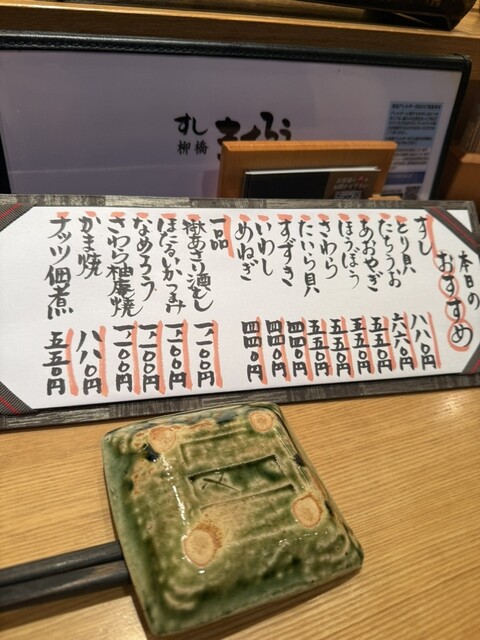 すし
柳橋
きくろう
本日の
おすすめ
すし
とり貝 八八〇円
たちうお 六六〇円
あおやぎ 五五〇円
ほうぼう 五五〇円
さわら 五五〇円
たいら貝 五五〇円
すずき 四四〇円
いわし 四四〇円
めねぎ 四四〇円
一品
あさり酒むし 一、一〇〇円
ほたるいかつまみ 一、一〇〇円
なめろう 一、一〇〇円
さわら柚庵焼 一、一〇〇円
かま焼 八八〇円
ナッツ佃煮 五五〇円